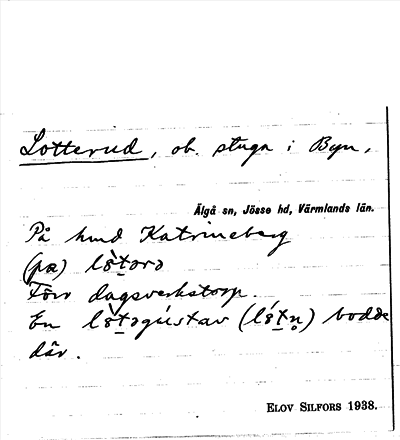 Lotterud, ob. stuga i Byn,
Älgå sn, Jösse hd, Värmlands län.
På hmd Katrineberg
(pæ)
Förr dagsverkstorp.
En bodde
där.
ELOV SILFORS 1938.